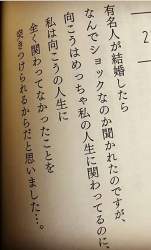 2
有名人が結婚したら
なんでショックなのか聞かれたのですが、
向こうはめっちゃ私の人生に関わってるのに、
私は向こうの人生に
全く関わってなかったことを
突きつけられるからだと思いました…。